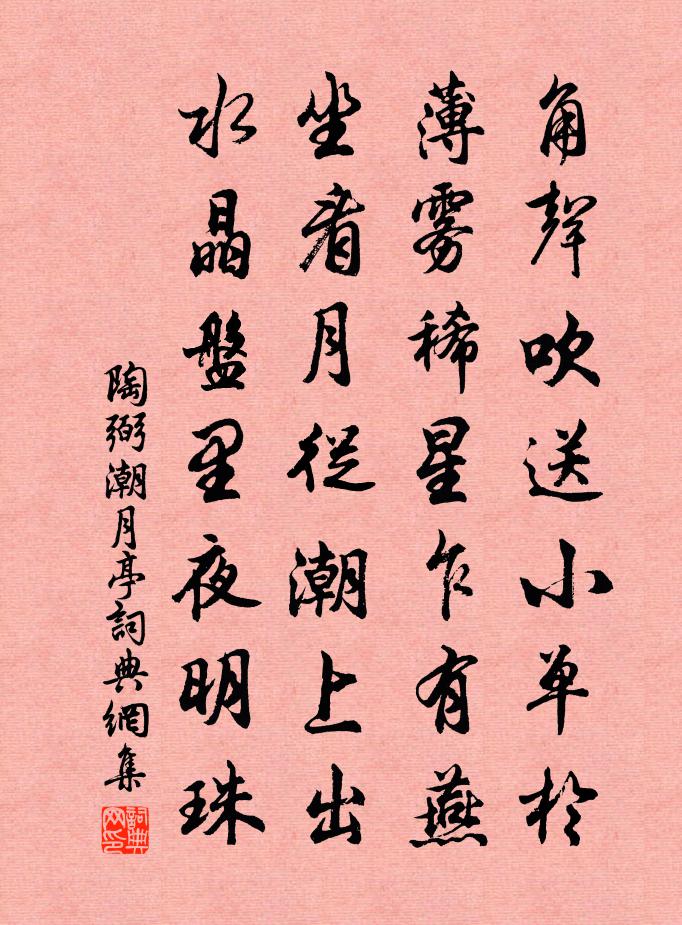 角聲吹送小单於
薄雾稀星乍有燕
坐看月從潮上出
水晶盤里夜明珠
陶弼潮月亭詞典網集
詞典网印